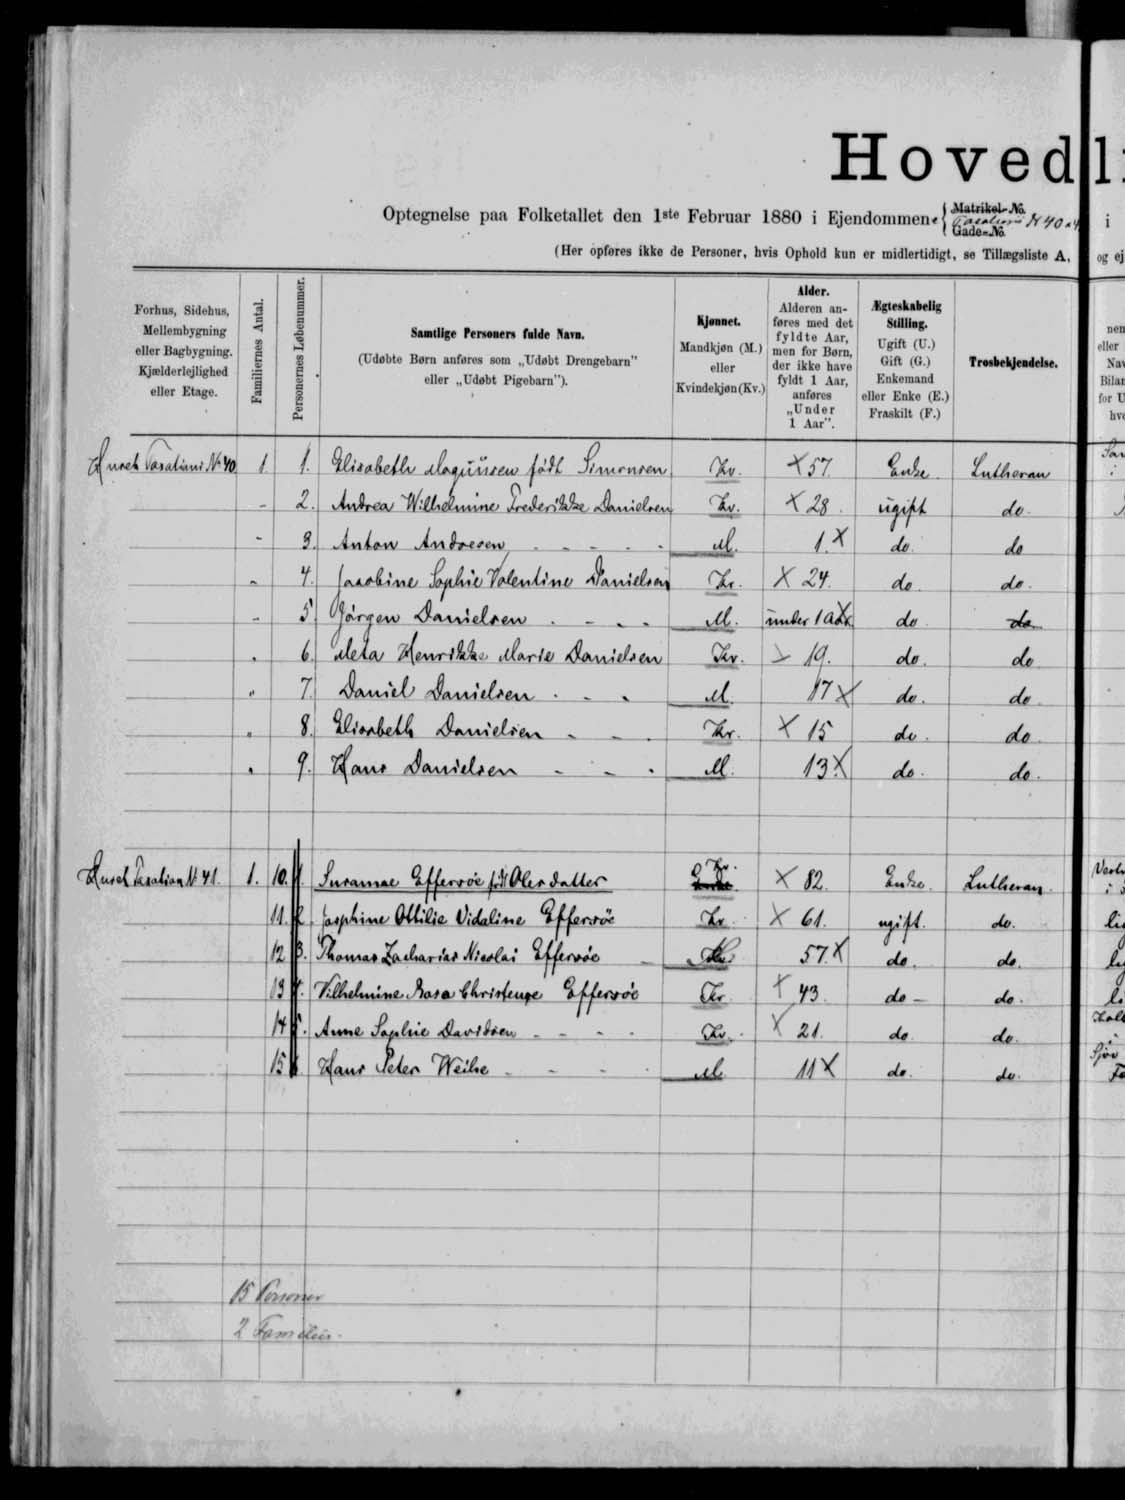 Hovedli
Optegnelse paa Folketallet den 1ste Februar 1880 i Ejendommene { Matrikel-No. Taxations № 40 Gade-No. i
(Her opføres ikke de Personer, hvis Ophold kun er midlertidigt, se Tillægsliste A, og ej
Forhus, Sidehus, Mellembygning eller Bagbygning. Kjælderlejlighed eller Etage.
Familiernes Antal.
Personernes Løbenummer.
Samtlige Personers fulde Navn.
(Udøbte Børn anføres som „Udøbt Drengebarn”
eller „Udøbt Pigebarn”).
Kjønnet.
Mandkjøn (M.)
eller
Kvindekjøn (Kv.)
Alder.
Alderen an-
føres med det
fyldte Aar,
men for Børn,
der ikke have
fyldt 1 Aar,
anføres
„Under
1 Aar”.
Ægteskabelig
Stilling.
Ugift (U.)
Gift (G.)
Enkemand
eller Enke (E.)
Fraskilt (F.)
Trosbekjendelse.
Huset Taxations № 40 1. 1. Elisabeth Magnussen født Simonsen Kv. X 57. Enke. Lutheran
2. Andrea Wilhelmine Frederikke Danielsen Kv. X 28. ugift do.
3. Anton Andresen M. 1. X do. do
4. Jacobine Sophie Valentine Danielsen Kv. X 24. do. do.
5 Jørgen Danielsen M. under 1 Aar X do do
6. Meta Henrikke Marie Danielsen Kv. 19. do. do
7. Daniel Danielsen M. 17 X do. do
8. Elisabeth Danielsen Kv. X 15 do. do
9. Hans Danielsen M. 13. X do. do.
Huset Taxation № 41. 1. 10. 1. Susanne Effersøe født Olesdatter Kv. X 82. Enke. Lutheran
11. 2. Josphine Ottilie Vidaline Effersøe Kv. X 61. ugift. do.
12 3. Thomas Zacharias Nicolai Effersøe 57. X do. do.
13 4. Vilhelmine Rosa Christense Effersøe Kv. X 43. do – do.
14 5. Anne Sophie Davidsen Kv. X 21. do. do.
15 6. Hans Peter Weihe M. 11 X do. do.
15 Personer
2 Familier.